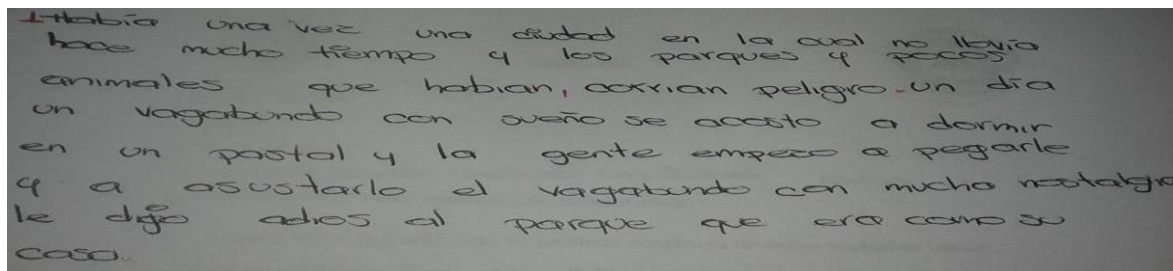 1-Había una vez una ciudad en la cual no llovía
hace mucho tiempo y los parques y pocos
animales que habian, corrian peligro. un día
un vagabundo con sueño se acosto a dormir
en un pastal y la gente empezo a pegarle
y a asustarlo el vagabundo con mucha nostalgia
le dijo adios al parque que era como su
casa.